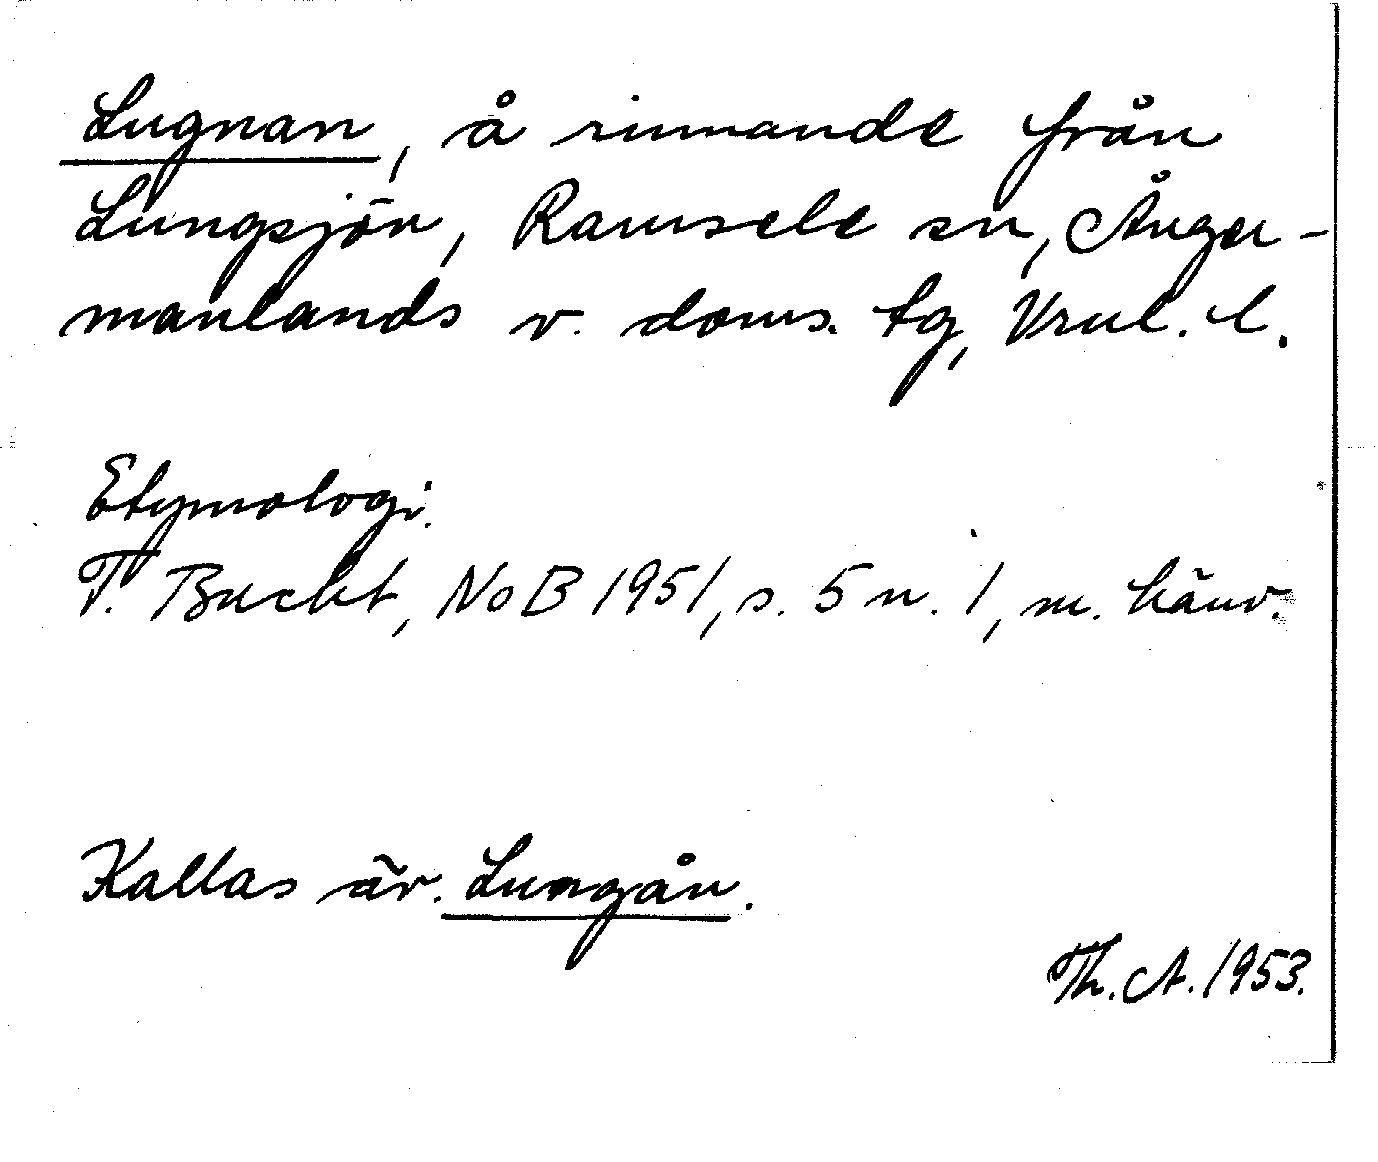 Lugnan, å rinnande från
Lungsjön, Ramsele sn, Ånger-
manlands v. doms. tg, Vrnl. l.
Etymologi.
T. Bucht, NoB 1951, s. 5 n. 1, m. hänv.
Kallas äv. Lungån.
Th. A. 1953.